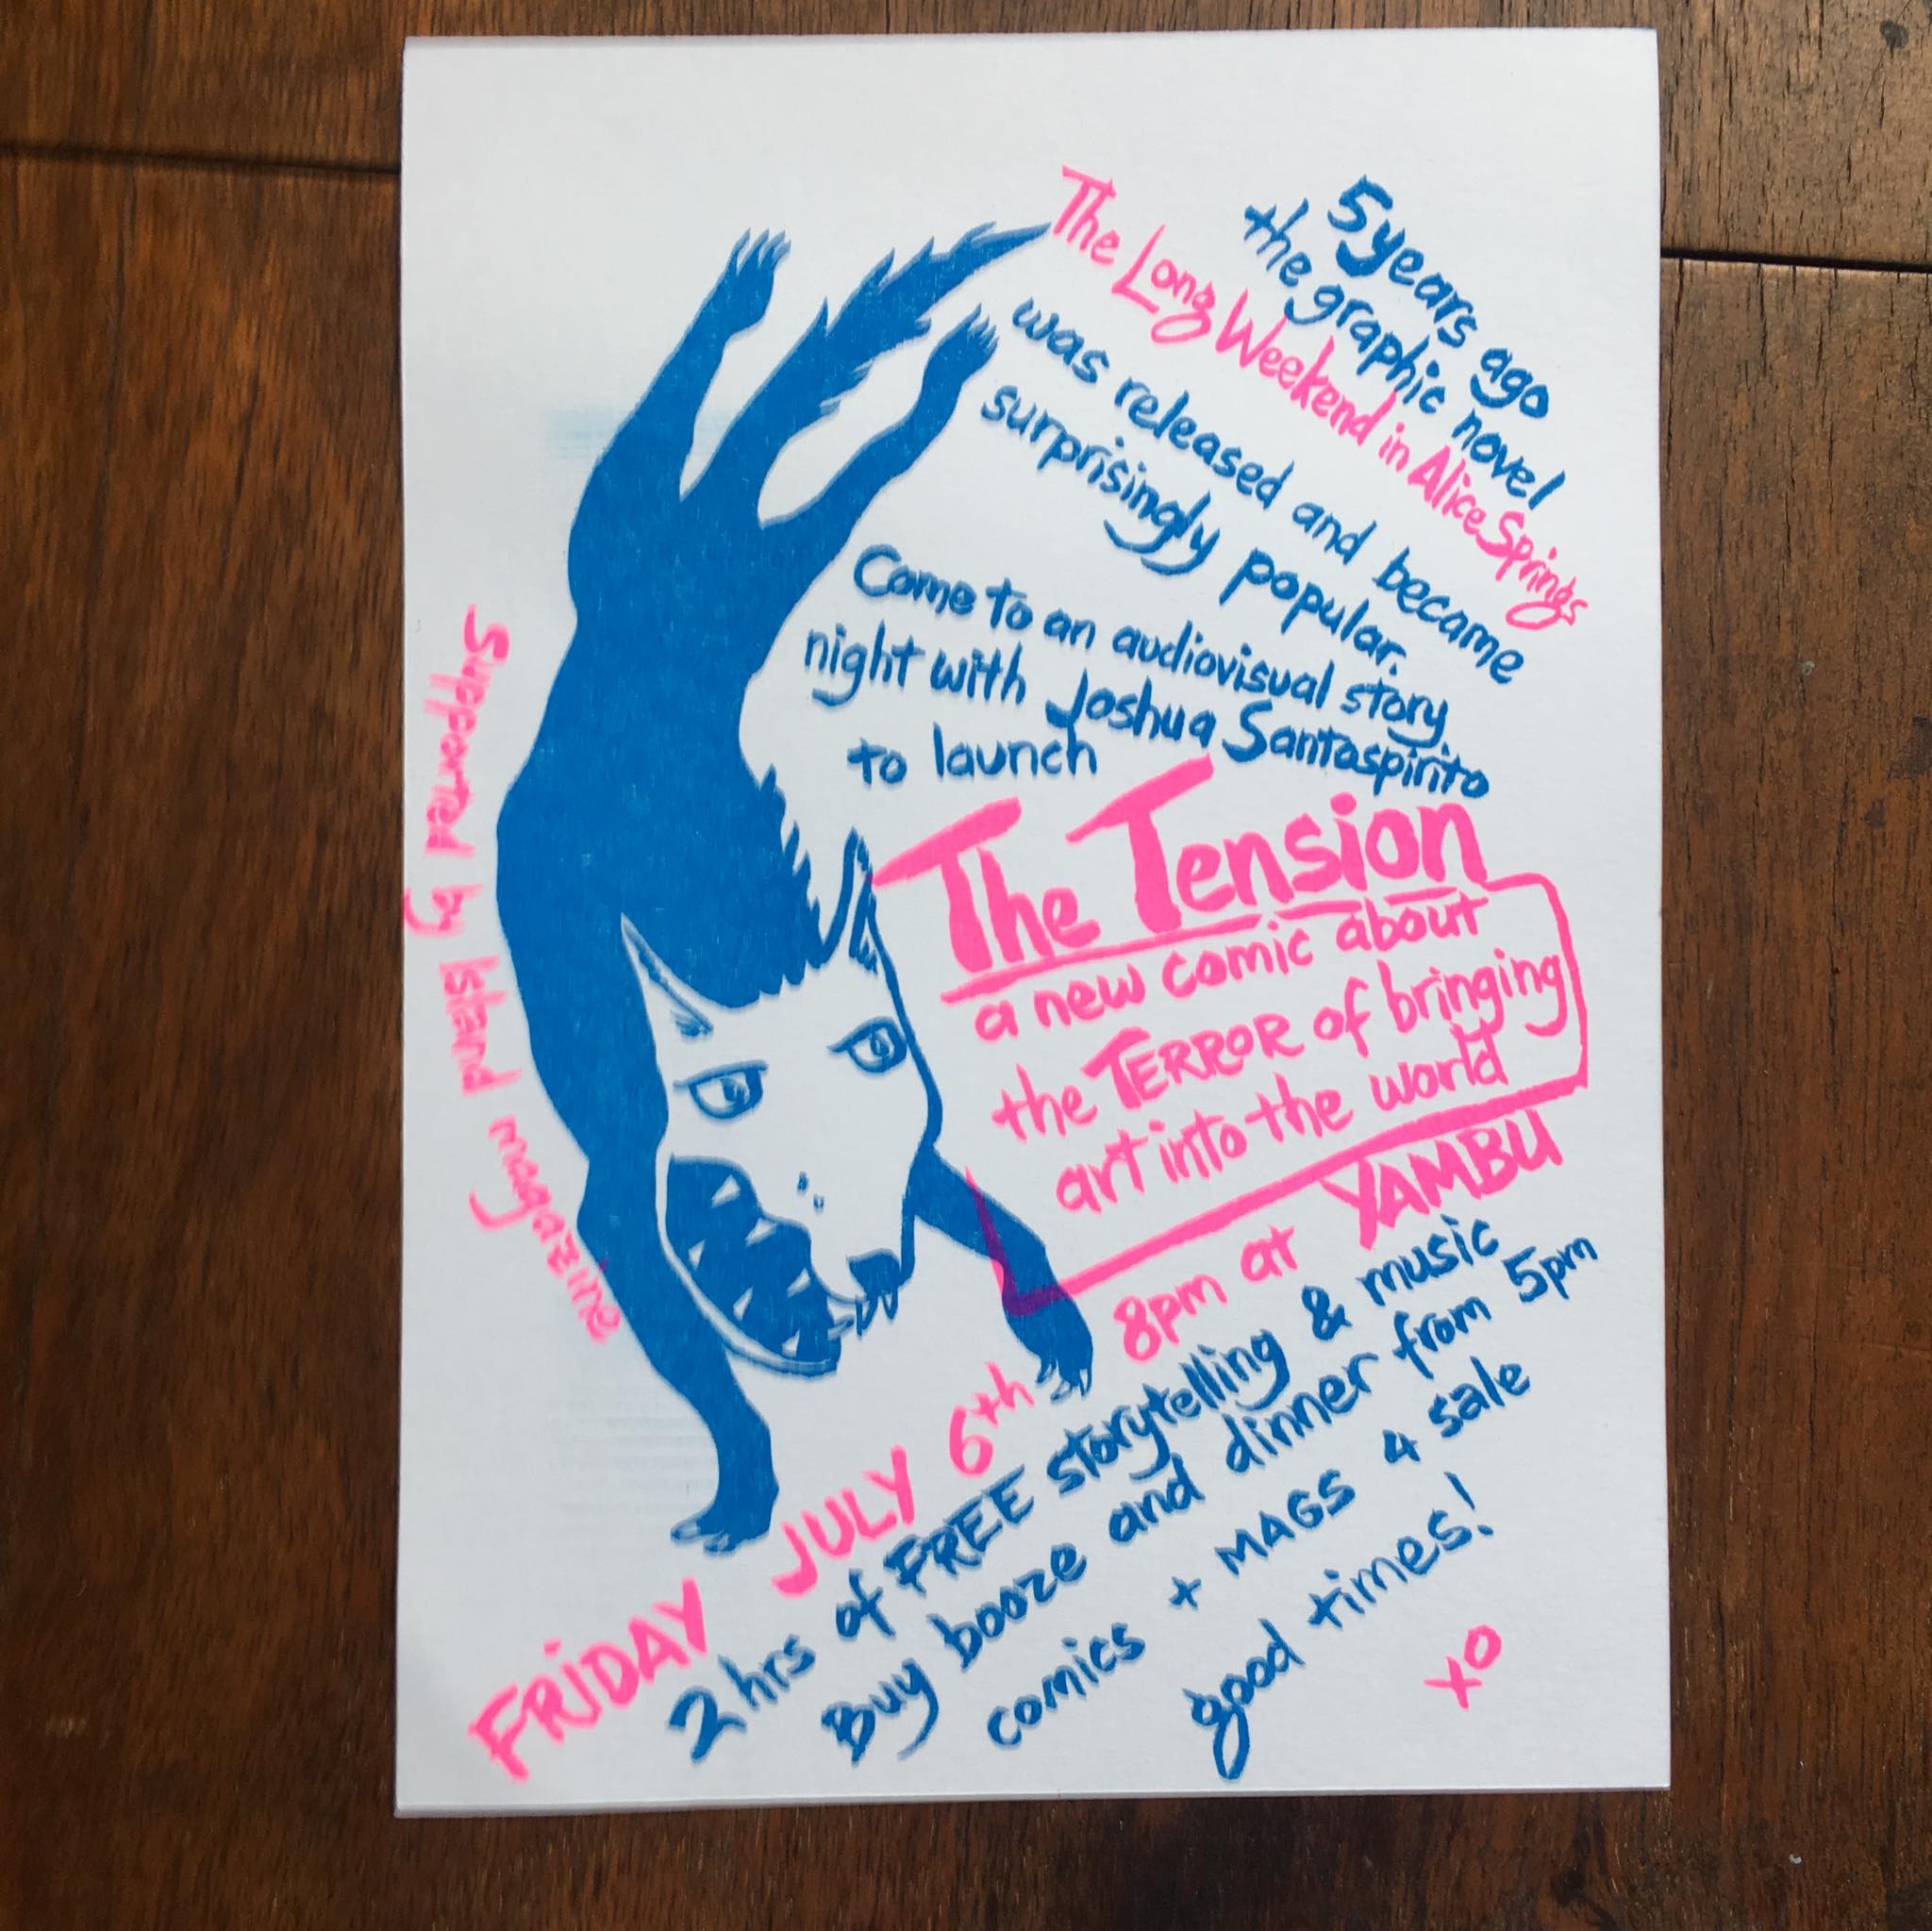 5 years ago
the graphic novel
The Long Weekend in Alice Springs
was released and became
surprisingly popular.
Come to an audiovisual story
night with Joshua Santospirito
to launch
The Tension
a new comic about
the TERROR of bringing
art into the world
8pm at YAMBU
FRIDAY JULY 6th
2 hrs of FREE storytelling & music
Buy booze and dinner from 5pm
comics + MAGS 4 sale
good times!
xo
Supported by Island magazine